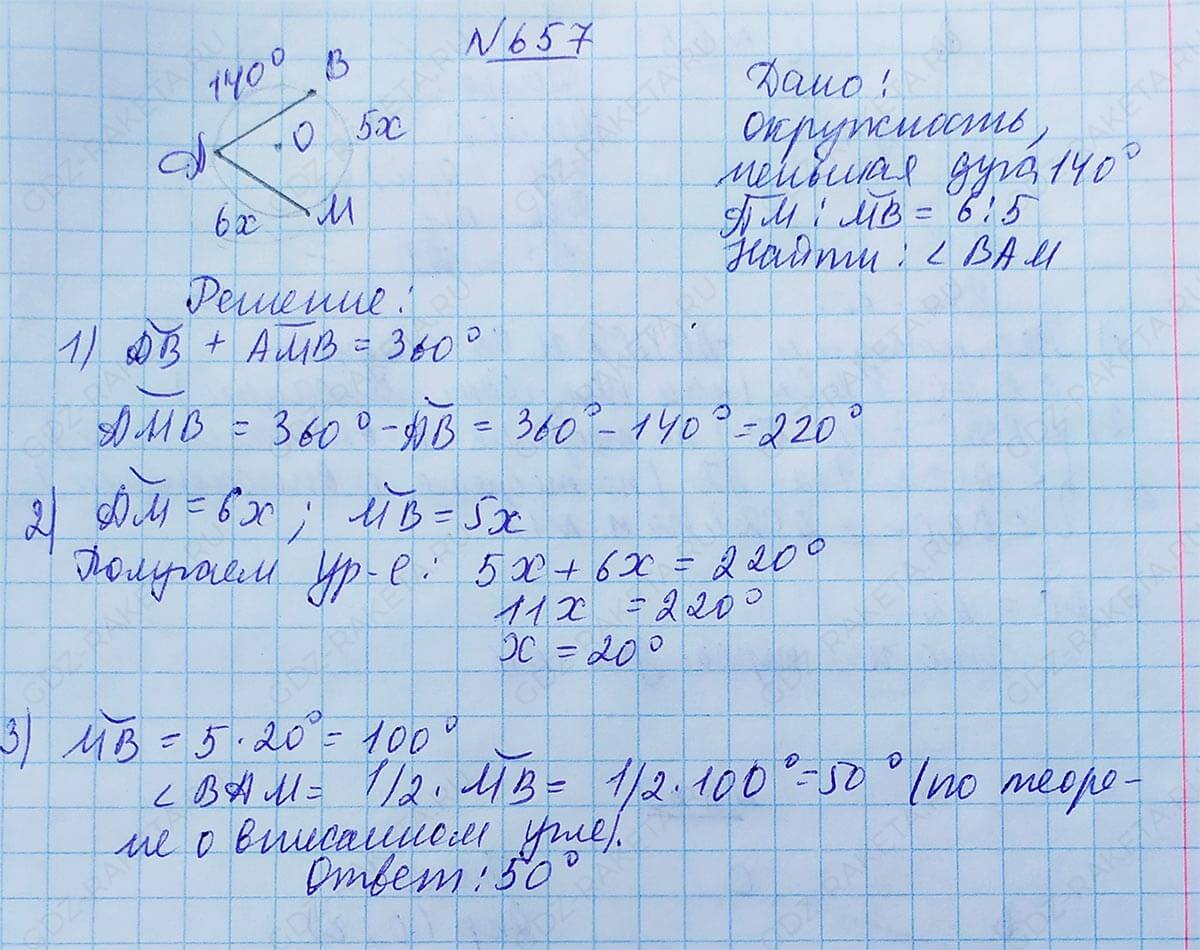 N657
140° B
A O 5x
6x M
Дано:
окружность,
меньшая дуга 140°
AM : MB = 6:5
Найти: < BAM
Решение:
1) AB + AMB = 360°
AMB = 360° - AB = 360° - 140° = 220°
2) AM = 6x ; MB = 5x
Получаем ур-е: 5x + 6x = 220°
11x = 220°
x = 20°
3) MB = 5 · 20° = 100°
< BAM = 1/2 · MB = 1/2 · 100° = 50° (по теоре-
ме о вписанном угле).
Ответ: 50°
GDZ-RAKETA.RU